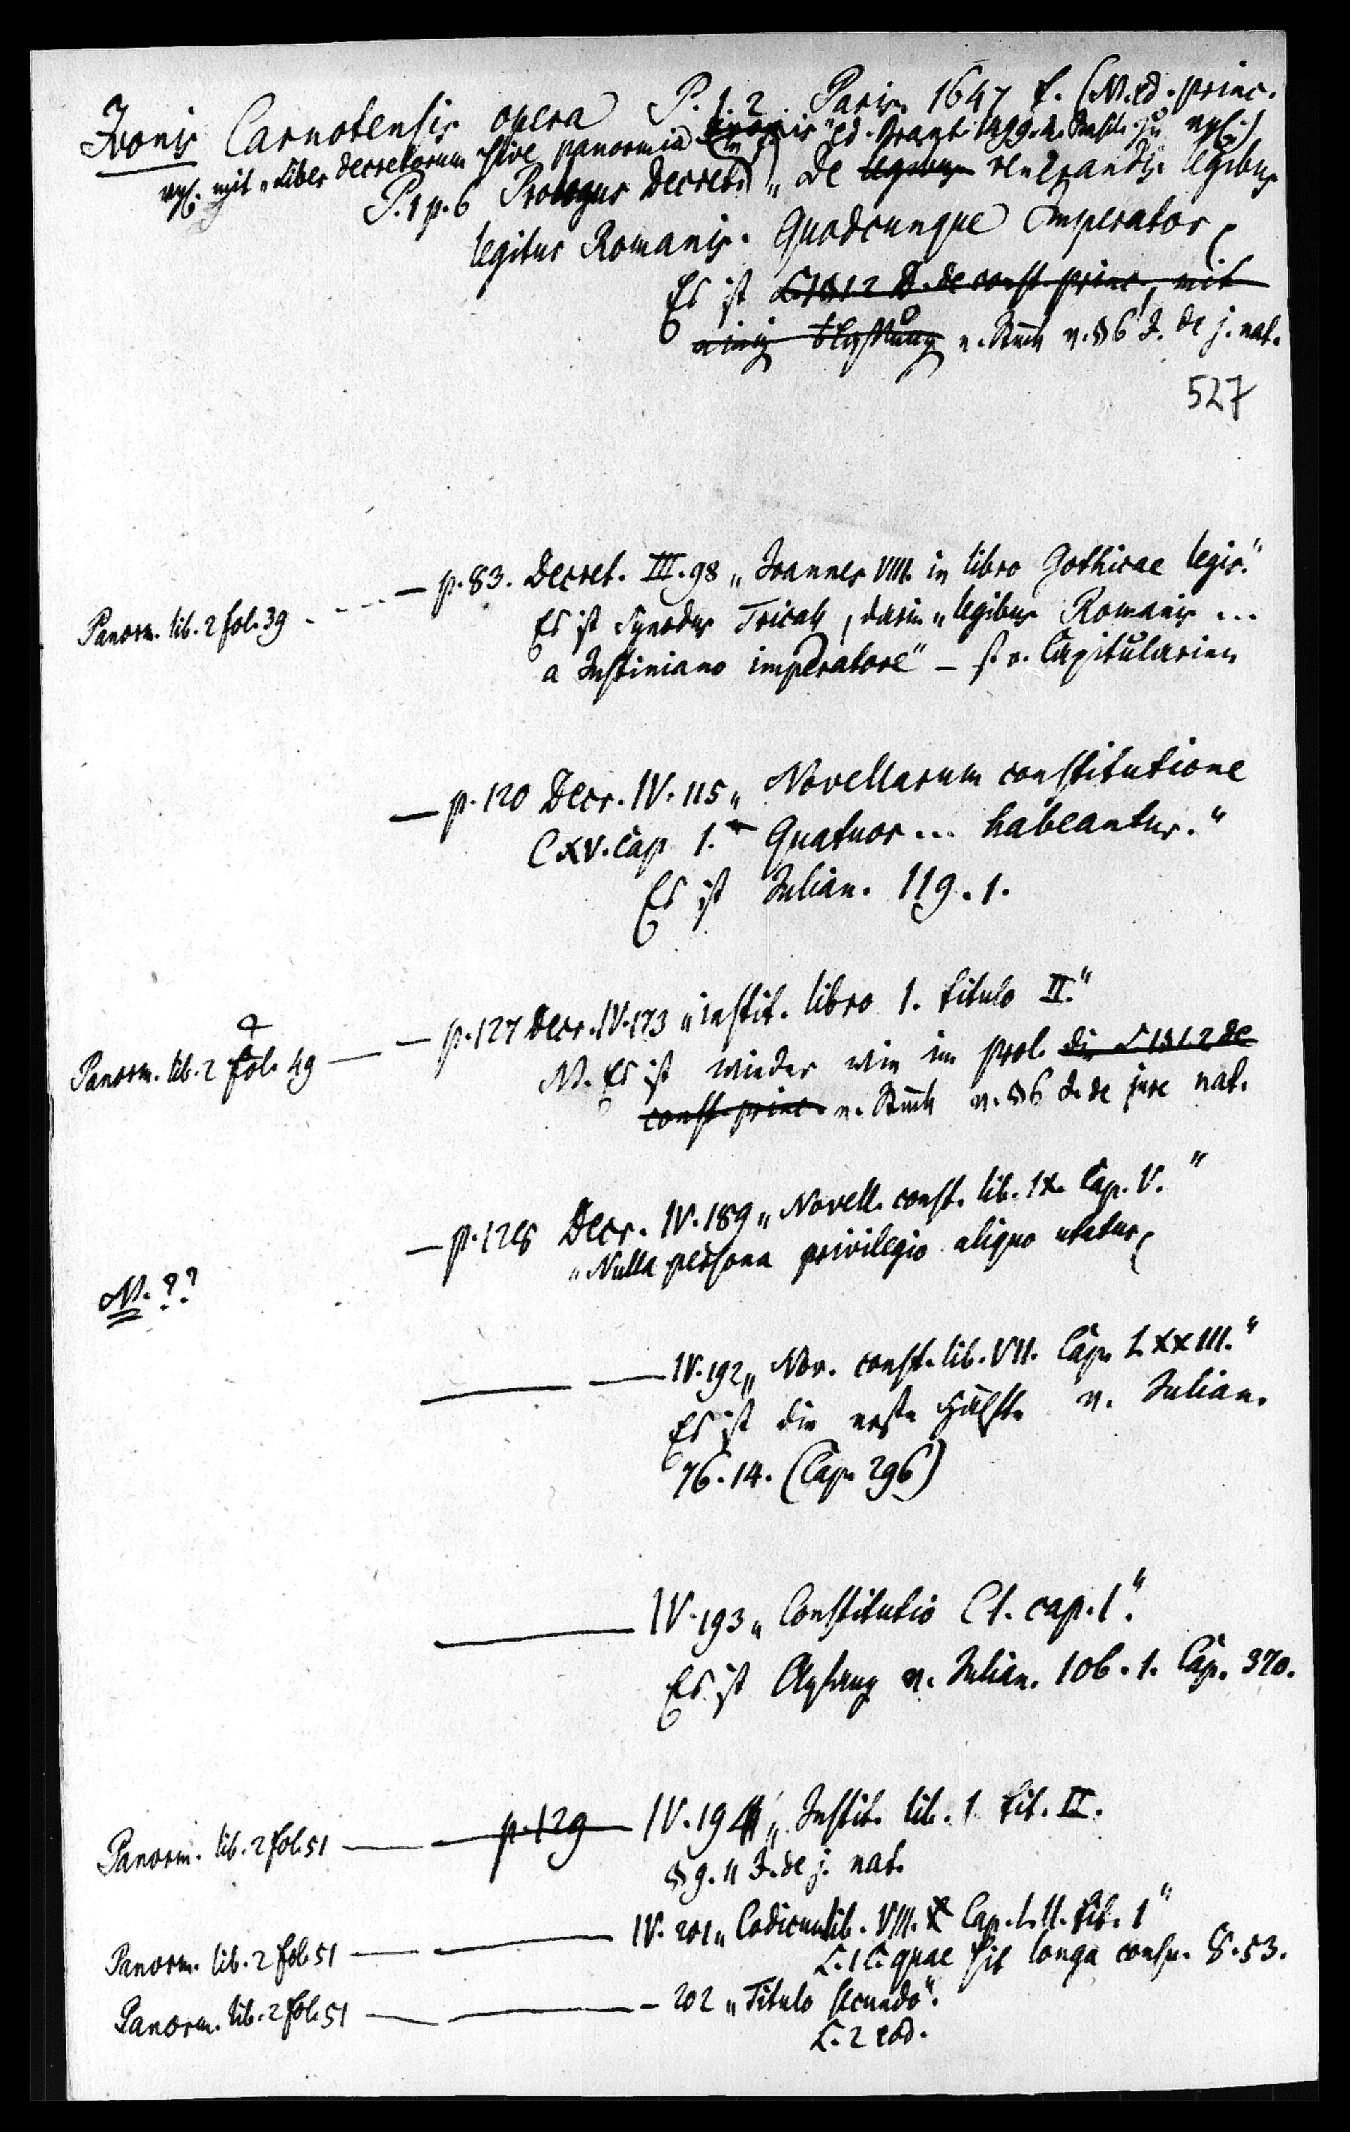 Ivonis Carnotensis opera P. 1. 2. Paris. 1647 f. (N. ed. princ.
vgl. mit „Liber decretorum sive panormia Ivonis“ ed. Brant 1499. 4. Basil. zu vgl.)
P. 1 p. 6 Prologus Decreti „De legibus venerandis legibus
legitur Romanis. Quodcunque Imperator
Es ist L. 1 § 1. 2 D. de const. princ., mit
einig v. Stück v. § 6 J. de j. nat.
527
Panorm. lib. 2 fol. 39 - - - — p. 83. Decret. III. 98 „Joannes VIII. in libro Gothicae legis.“
Es ist Synodus Tricass., darin „legibus Romanis ...
a Justiniano imperatore“ — st. v. Capitularien
— p. 120 Decr. IV. 115 „Novellarum constitutione
CXV. Cap 1. Quatuor ... habeantur.“
Es ist Julian. 119. 1.
Panorm. lib. 2 fol. 49 — — p. 127 Decr. IV. 173 „instit. libro 1. titulo II.“
N. Es ist wieder wie im prol. die L 1 § 1. 2 de
const. princ. v. Stück v. § 6 J. de jure nat.
— p. 128 Decr. IV. 189 „Novell. const. lib. IX. Cap. V.“
„Nulla persona privilegio aliquo utatur
N. ??
— — IV. 192 „Nov. const. lib. VII. Cap. LXXIII.“
Es ist die erste Hälfte v. Julian.
76. 14. (Cap. 296)
— IV. 193 „Constitutio C1. cap. 1“.
Es ist Anfang v. Julian. 106. 1. Cap. 370.
Panorm. lib. 2 fol. 51 — p. 129 — IV. 194 „Instit. lib. 1. tit. II.
§ 9. 11 J. de j. nat.
Panorm. lib. 2 fol. 51 — — IV. 201 „Codicum lib. VIII. Cap. LII. tit. 1“
L. 1 C. quae sit longa consu. 8. 53.
Panorm. lib. 2 fol. 51 — — 202 „Titulo secundo“.
L. 2 eod.